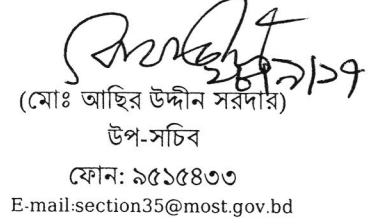 ২৮/৯/১৭
(মোঃ আছির উদ্দীন সরদার)
উপ-সচিব
ফোন: ৯৫১৫৪৩৩
E-mail:section35@most.gov.bd